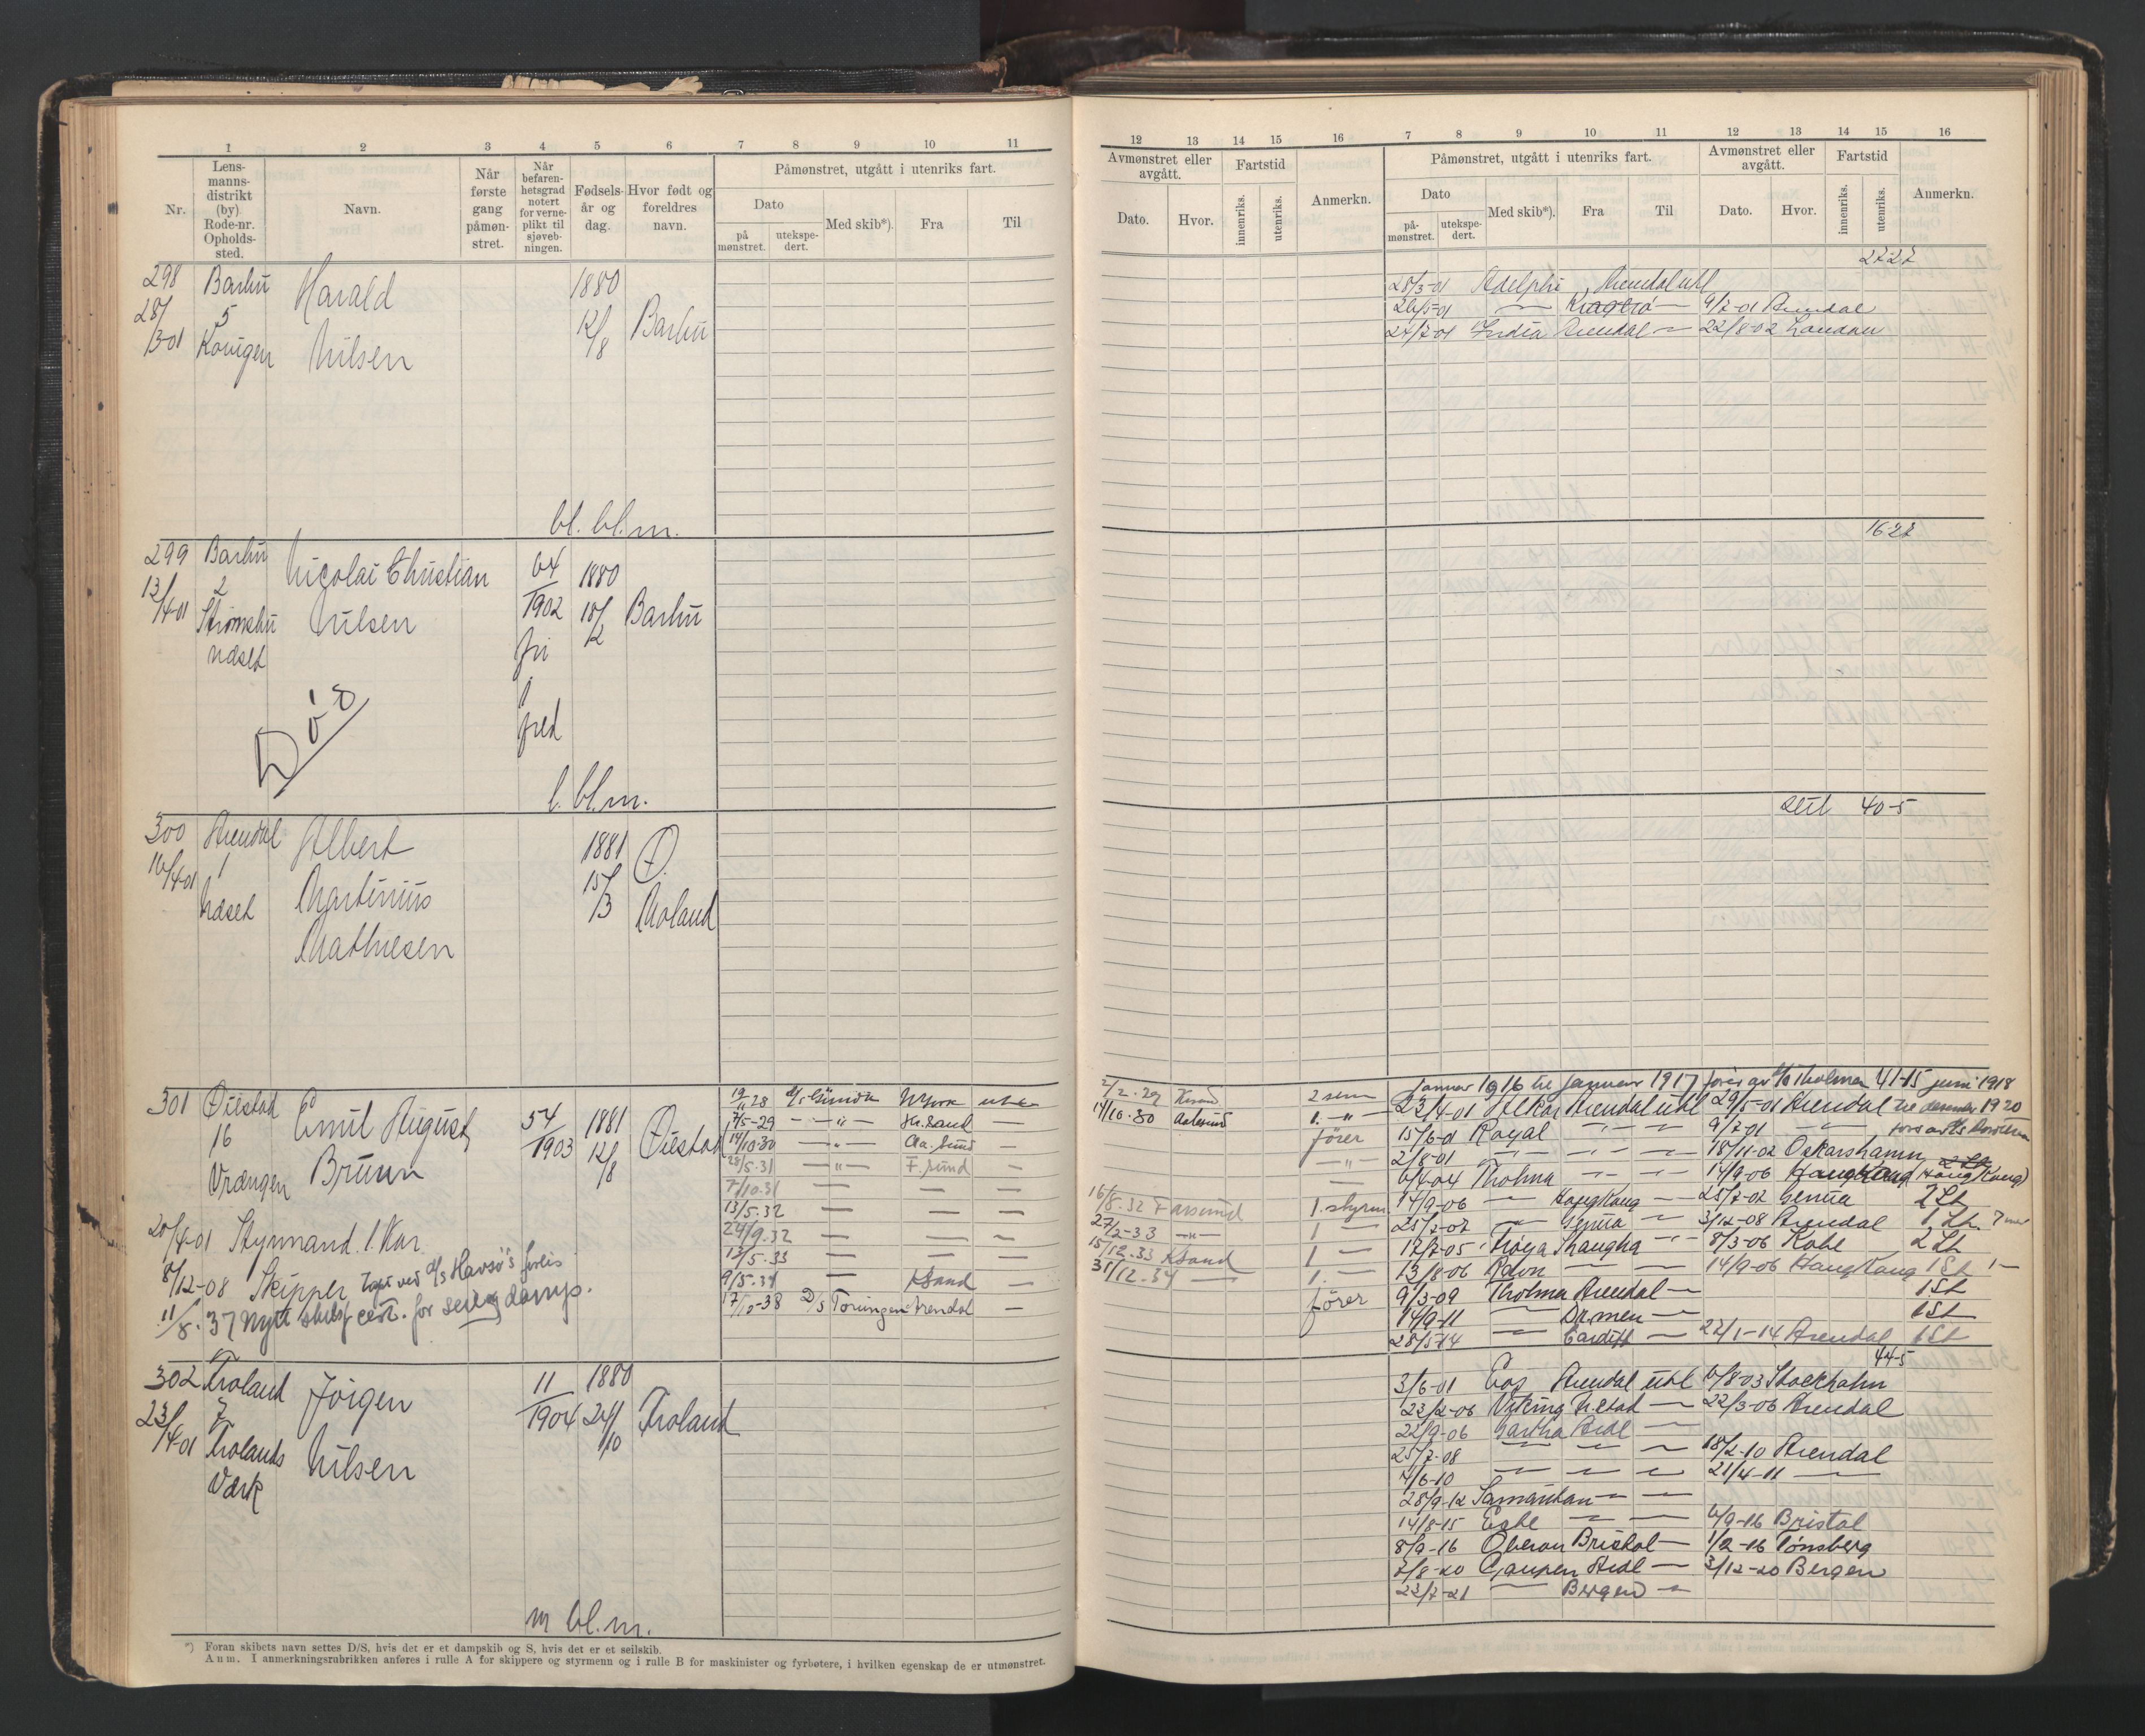 1 2 3 4 5 6 7 8 9 10 11
Nr.
Lens-
manns-
distrikt
(by)
Rode-nr.
Opholds-
sted.
Navn.
Når
første
gang
påmøn-
stret.
Når
befaren-
hetsgrad
notert
for verne-
plikt til
sjøveb-
ningen.
Fødsels-
år og
dag.
Hvor født og
foreldres
navn.
Påmønstret, utgått i utenriks fart.
Dato
på
mønstret.
utekspe-
dert.
Med skib*).
Fra
Til
298 Barbu Harald 1880
28/3-01 5 12/8 Barbu
Nilsen
bl. bl. m.
299 Barbu Nicolai Christian 64 1880
13/4-01 2 Nilsen 1902 18/12 Barbu
Udset
fri
i
fred
Død
l. bl. m.
300 Arendal Albert 1881 Ø.
16/4-01 1 Martinius 15/3 Moland
Udset Mathiesen
301 Øiestad Emil August 54 1881
16 Bruun 1903 12/8 Øiestad
Vrængen
20/4-01 Styrmand. 1. Kar.
8/12-08 Skipper
11/8. 37 Nytt cert. for seil og damp.
7/5-29 Kr.sand
14/10-30 Aa. sund
28/5.31 F. sund
7/10.31
13/5.32
24/9.32
13/5.33
9/5.34 Ksand
17/12-38 D/S Torungen Arendal
302 Froland Jörgen 11 1880
23/4-01 7 1904 24/10 Froland
Frolands Nilsen
Værk
m bl. m.
*) Foran skibets navn settes D/S, hvis det er et dampskib og S, hvis det er et seilskib.
Anm. I anmerkningsrubrikken anføres i rulle A for skippere og styrmenn og i rulle B for maskinister og fyrbøtere, i hvilken egenskap de er utmønstret.
12 13 14 15 16 7 8 9 10 11 12 13 14 15 16
Avmønstret eller
avgått.
Dato.
Hvor.
Fartstid
innenriks.
utenriks.
Anmerkn.
Påmønstret, utgått i utenriks fart.
Dato
på-
mønstret.
utekspe-
dert.
Med skib*).
Fra
Til
Avmønstret eller
avgått.
Dato.
Hvor.
Fartstid
innenriks.
utenriks.
Anmerkn.
27-27
28/3-01 Adelphi Arendal utl
26/5-01 — Kragerø — 9/7-01 Arendal
27/7-01 India Arendal — 22/8-02 London
16-27
seil 40-5
januar 1916 til januar 1917 fører av Tholma 41-15 juni 1918
2/2-29
14/10-30 Aalesund 1. — " —
23/4-01 Alkor Arendal utl 29/5-01 Arendal til desember 1920
fører 15/6-01 Royal — " — 9/7-01 —
2/8-01 — 18/11-02 Oskarshamn
6/4-04 Tholma — 14/9-06 HongKong (Hong Kong)
16/8-32 Farsund 1. styrm 14/9-06 — HongKong — 25/7-07 Genua 2 St
27/2-33 — " — 1 — 25/7-07 — Genua — 3/12-08 Arendal 1 St.
15/12.33 Ksand 1 — 17/7-05 Freya Shanghai — 8/3-06 Kobe 2 St
31/12.34 — 1. — 13/8-06 — 14/9-06 HongKong 1 St
fører 9/3-09 Tholma Arendal — 1 St
14/9-11 — Drmen — 1 St
28/5-14 — Cardiff — 22/1-14 Arendal 1 St
44-5
3/6-01 Eos Arendal utl 6/8-03 Stockholm
23/2-06 Viking — 22/3-06 Arendal
22/9-06 Gartha Ardl —
25/7-08 — — — 18/2-10 Arendal
4/6-10 — — — 21/4-11 —
28/9-12 Samaritan — —
14/8-15 — — 6/9-16 Bristol
8/9-16 Oberon Bristol — 1/2-16 Tønsberg
7/8-20 Gaupen Ardl — 3/12-20 Bergen
23/7-21 — Bergen —